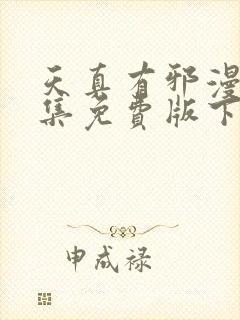 天真有邪漫
集免费版下
申成禄